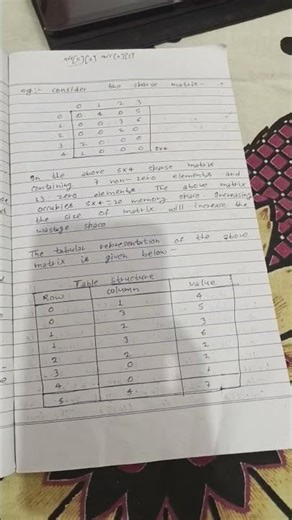 arr[0][0] arr[0][1]
eg:- consider the sparse matrix -
0 1 2 3
0 0 4 0 5
1 0 0 3 6
2 0 0 2 0
3 2 0 0 0
4 1 0 0 0 5x4
In the above 5x4 sparse matrix
containing 7 non-zero elements and
13 zero elements. The above matrix
occupies 5x4 = 20 memory space. Increasing
the size of matrix will increase the
wastage space
The tabular representation of the above
matrix is given below -
Table structure
Row column value
0 1 4
0 3 5
1 2 3
1 3 6
2 2 2
3 0 2
4 0 1
5 4 7